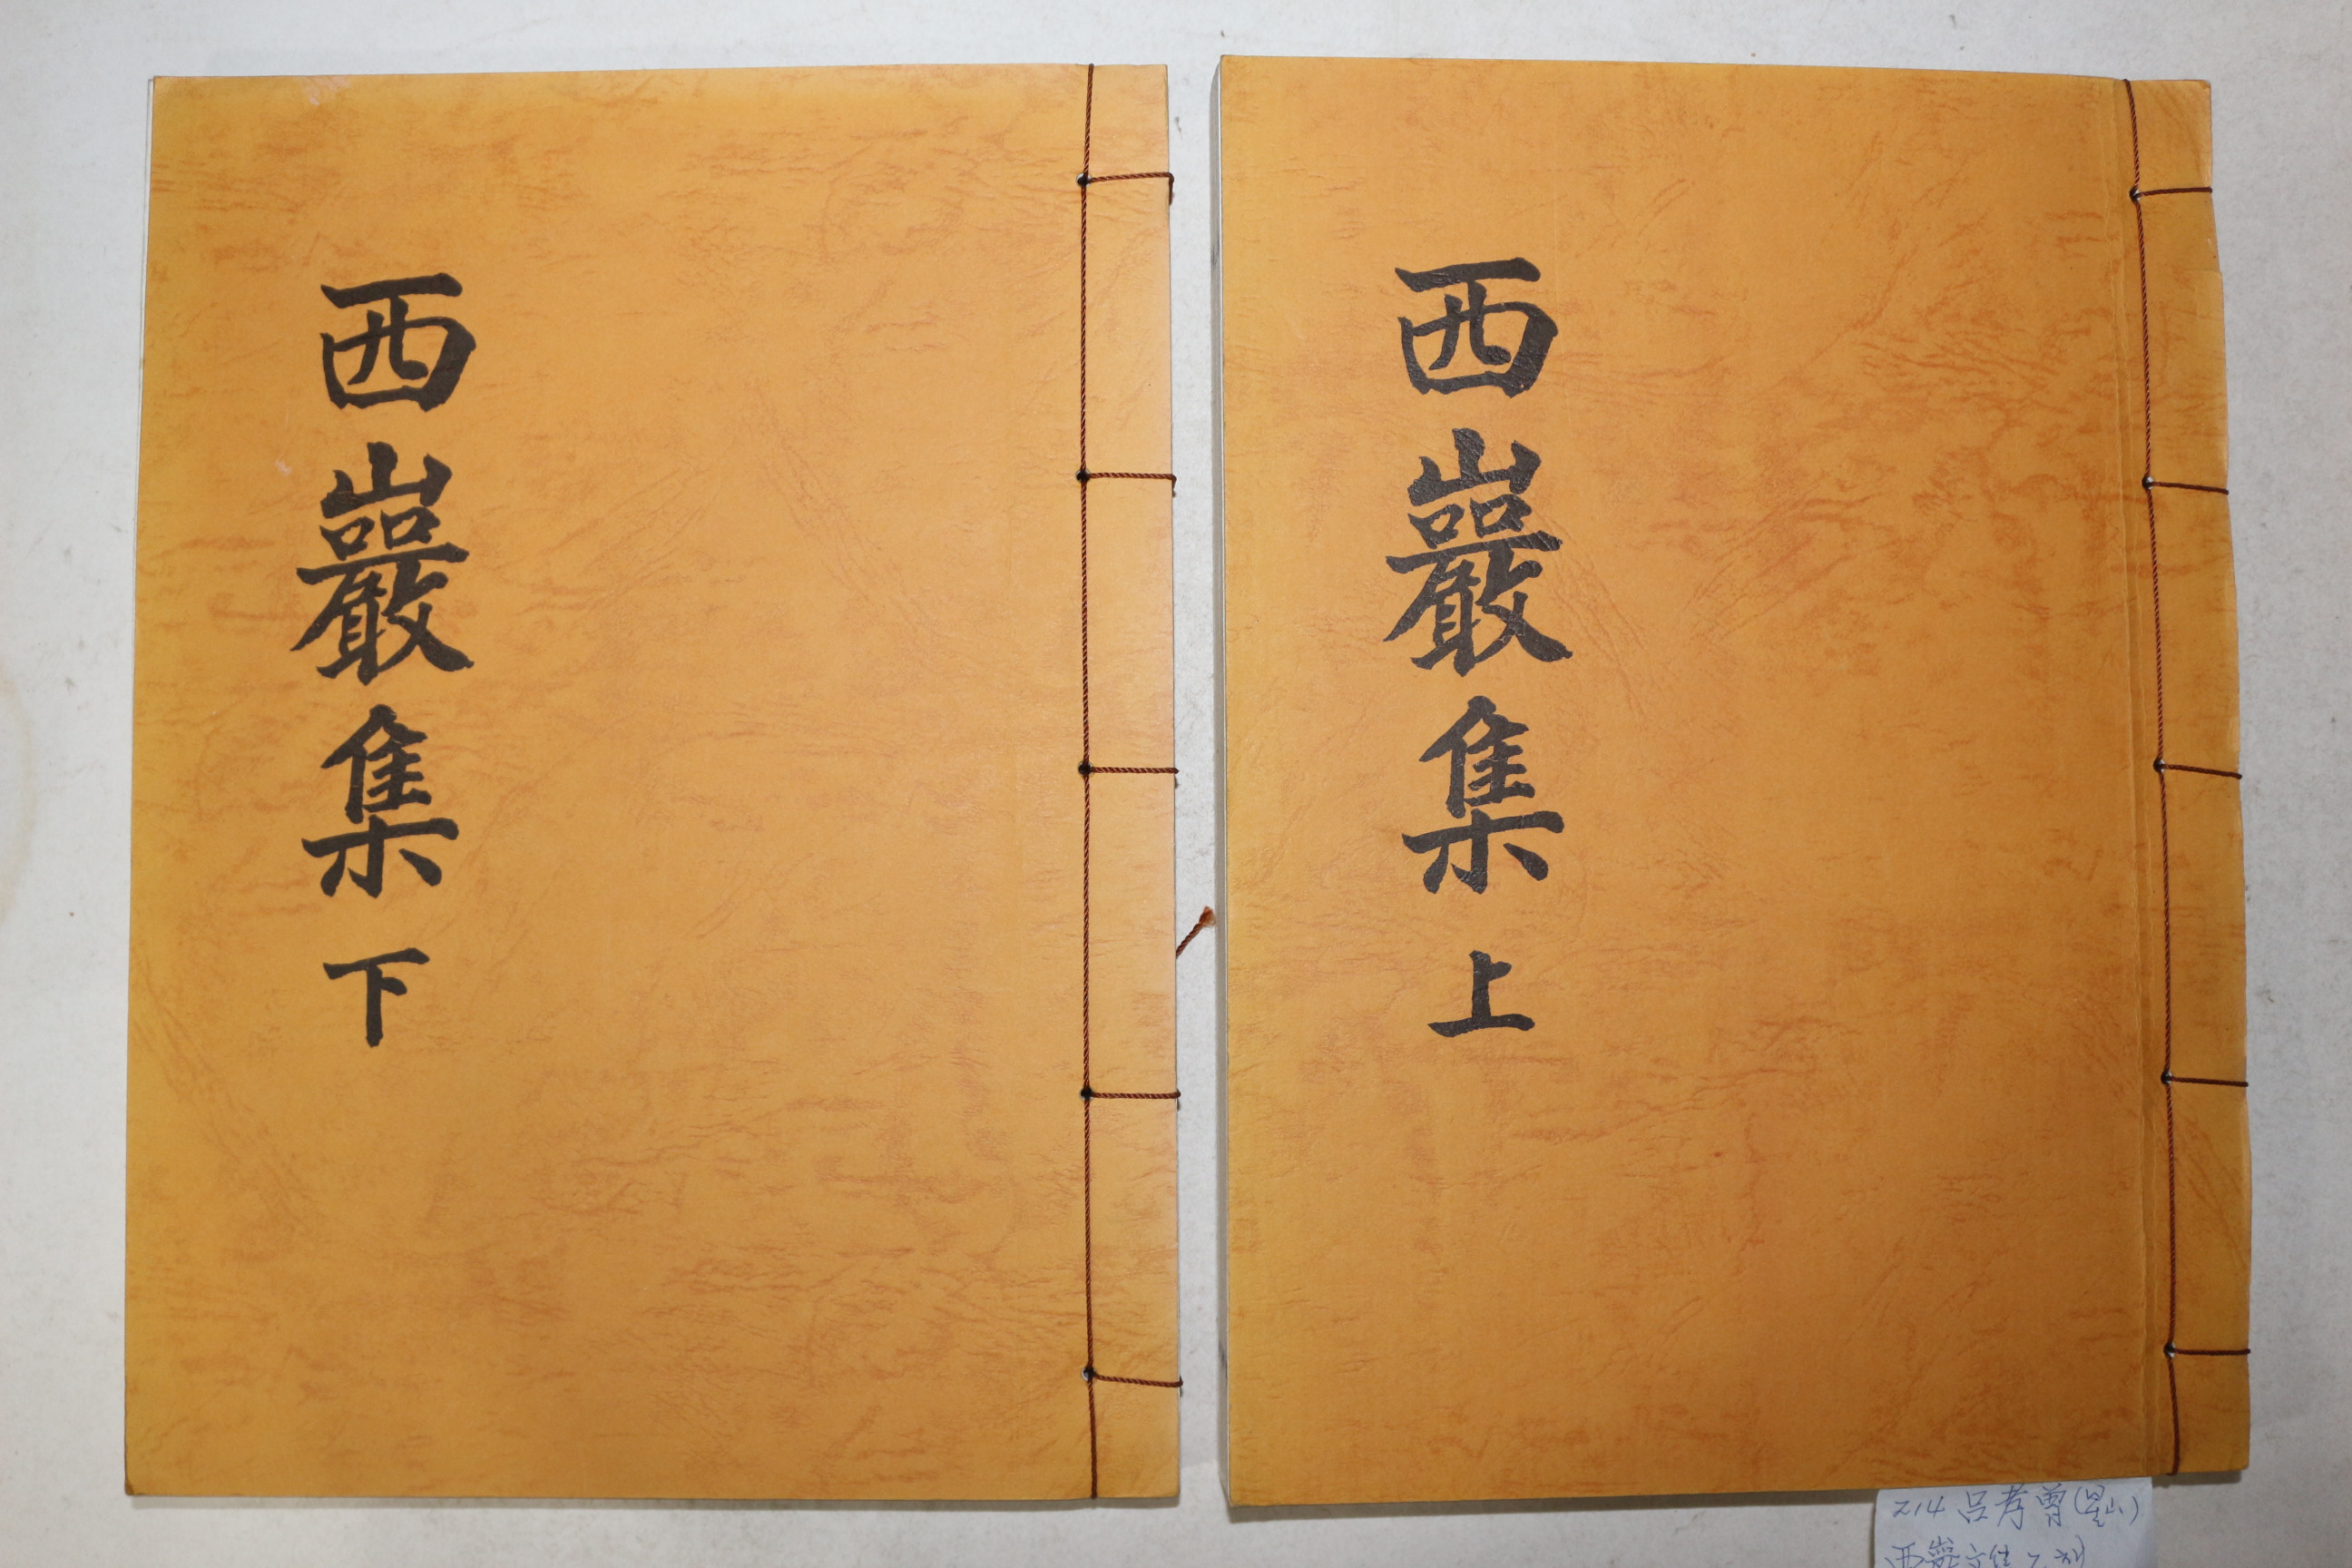 西巖集 上
西巖集 下
214 呂孝曾(星山)
西巖文集 2책